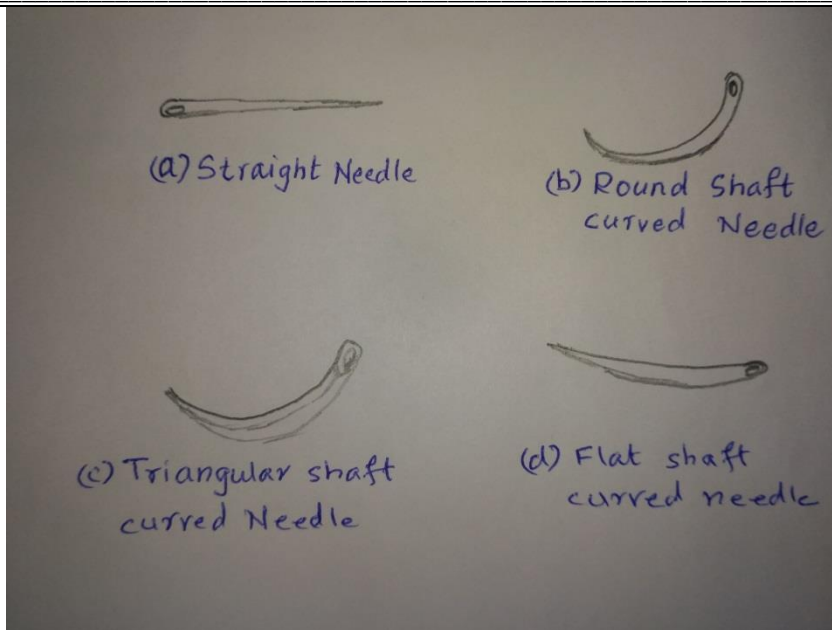 (a) Straight Needle
(b) Round Shaft
curved Needle
(c) Triangular shaft
curved Needle
(d) Flat shaft
curved needle